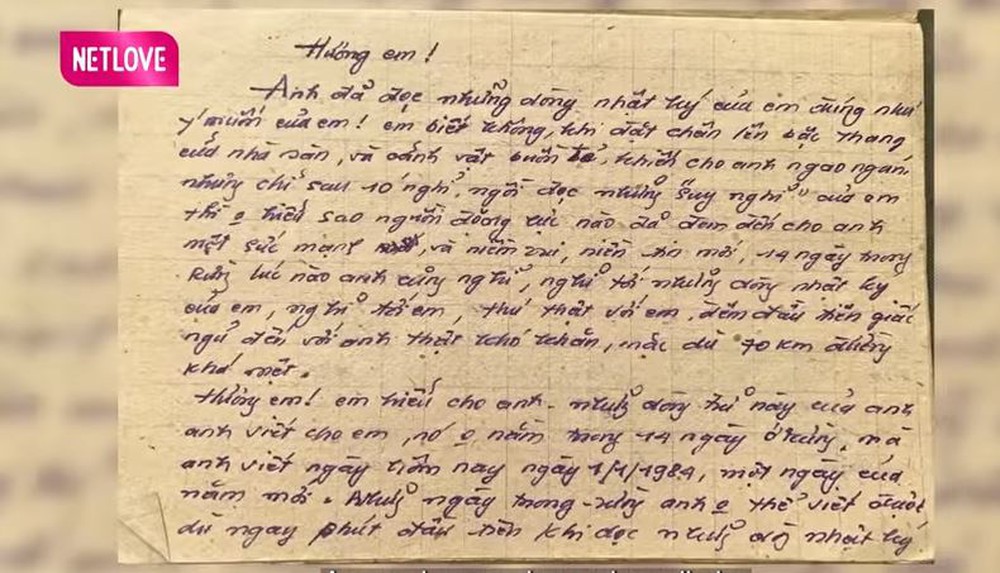 NETLOVE
Hương em!
Anh đã đọc những dòng nhật ký của em đúng như
ý muốn của em! em biết không, khi đặt chân lên bậc thang
của nhà sàn, và cảnh vật buồn tẻ, khiến cho anh ngao ngán
nhưng chỉ sau 10' nghỉ, ngồi đọc những "suy nghĩ" của em
thì o hiểu sao nguồn động lực nào đã đem đến cho anh
một sức mạnh, và niềm vui, niềm tin mới, 14 ngày trong
Rừng lúc nào anh cũng nghĩ, nghĩ tới những dòng nhật ký
của em, nghĩ tới em, thú thật với em, đêm đầu tiên giấc
ngủ đến với anh thật khó khăn, mặc dù 70 km đường
khá mệt.
Hương em! em hiểu cho anh. những dòng thư này của anh
anh viết cho em, nó o nằm trong 14 ngày ở rừng, mà
anh viết ngày hôm nay ngày 1/1/1984, một ngày của
năm mới. Những ngày trong rừng anh o thể viết được
dù ngay phút đầu tiên khi đọc những dòng nhật ký